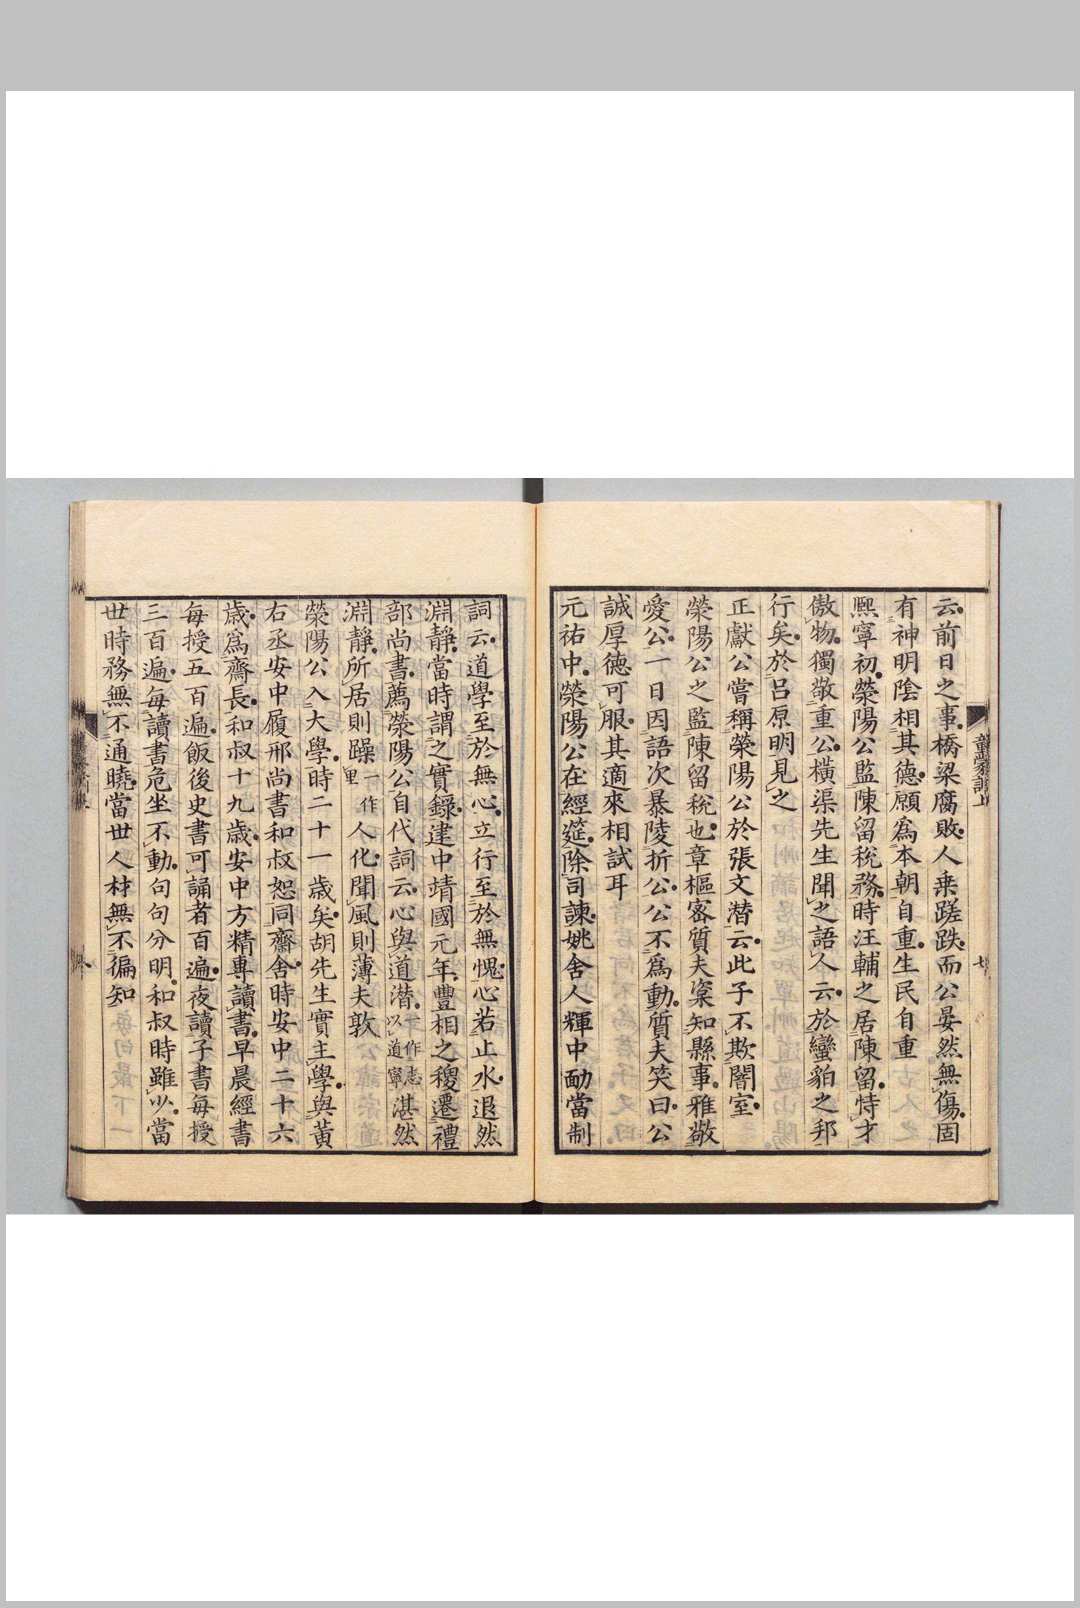 云前日之事橋梁腐敗人乗蹉跌而公晏然無傷固
有神明陰相其德願爲本朝自重生民自重
熈寧初滎陽公監陳留稅務時汪輔之居陳留恃才
傲物獨敬重公橫渠先生聞之語人云於蠻貊之邦
行矣於呂原明見之
正獻公嘗稱滎陽公於張文潜云此子不欺闇室
滎陽公之監陳留稅也章樞密質夫楶知縣事雅敬
愛公一日因語次暴陵折公公不爲動質夫笑曰公
誠厚德可服其適來相試耳
元祐中滎陽公在經筵除司諫姚舍人輝中勔當制
詞云道學至於無心立行至於無愧心若止水退然
淵靜當時謂之實錄建中靖國元年豐相之稷遷禮
部尚書薦滎陽公自代詞云心與道潜一作志以道寧湛然
淵靜所居則躁一作里人化聞風則薄夫敦
滎陽公入大學時二十一歲矣胡先生實主學與黃
右丞安中履邢尚書和叔恕同齋舍時安中二十六
歲爲齋長和叔十九歲安中方精專讀書早晨經書
每授五百遍飯後史書可誦者百遍夜讀子書每授
三百遍每讀書危坐不動句句分明和叔時雖少當
世時務無不通曉當世人材無不徧知